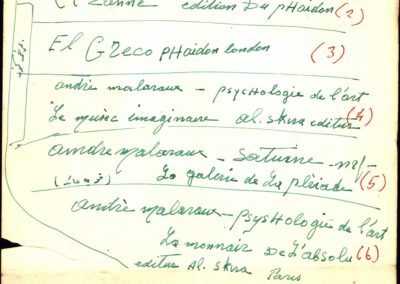 Cézanne edition Du pHaidon (2)
El Greco pHaidon london (3)
andré malaraux – psycHologie de l'art
Le music imaginaire al. skira editur (4)
andre malaraux – saturne
La galerie de La plèiade (5)
andrè malaraux – psysHologie de l'art
La monnair De L'absolu (6)
editur Al. Skira Paris